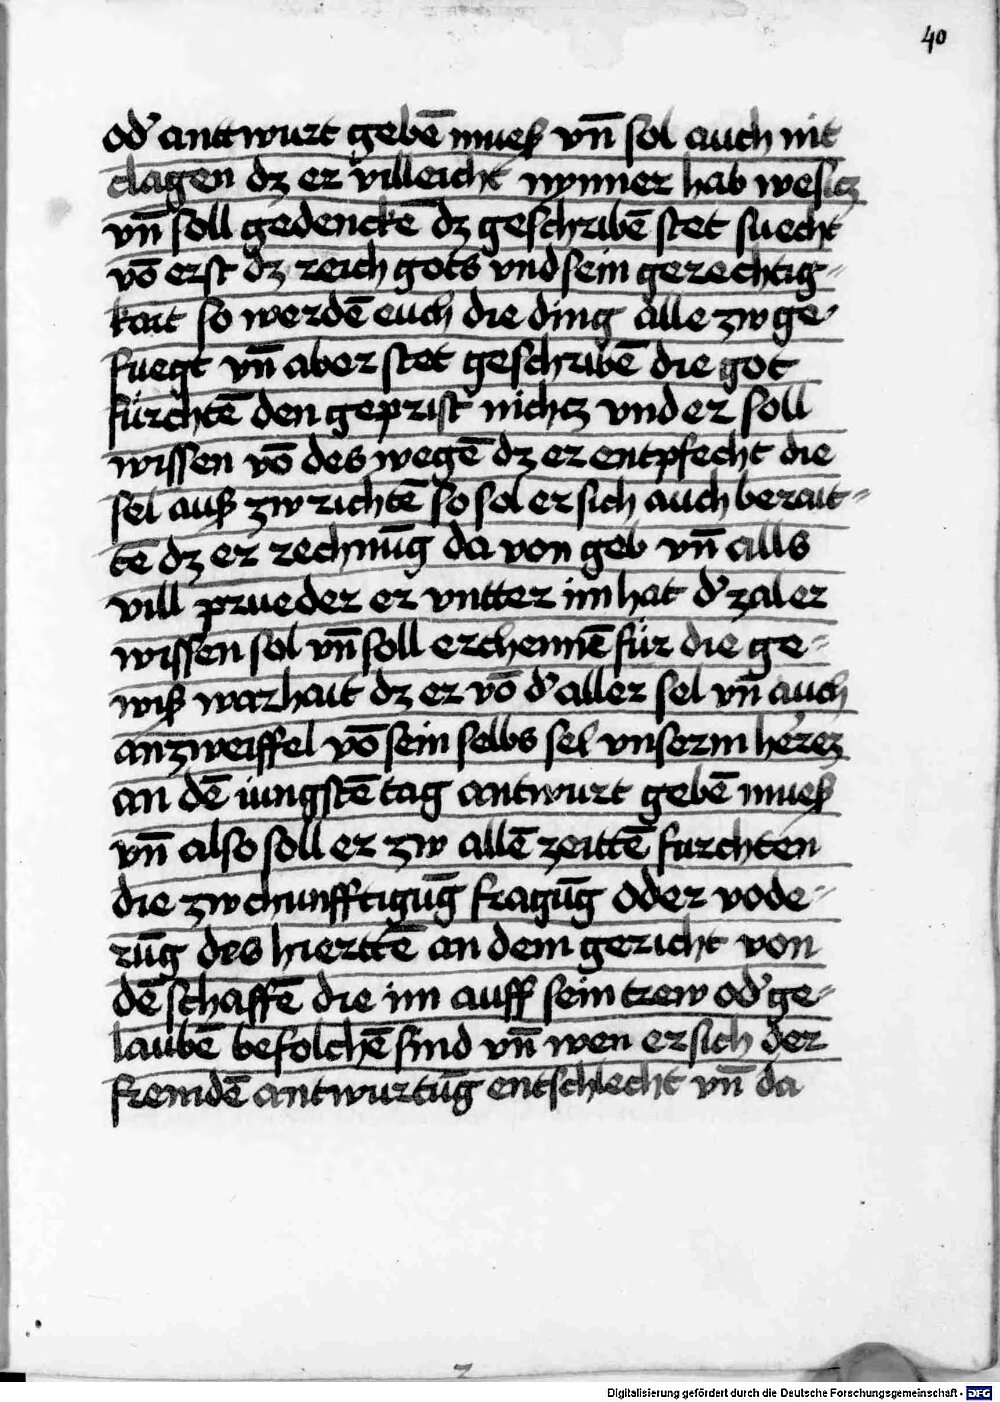 40
od' anttwurt gebē mueß vn̄ sol auch nit
clagen dz er villeicht mynner hab wesitz
vn̄ soll gedenckē dz geschribē stet suecht
vō erst dz reich gots vnd sein gerechtig-
kait so werdē euch die ding alle zw ge-
fuegt vn̄ aber stet geschribē die got
fürchtē den geprist nichtz vnd er soll
wissen vō des wegē dz er entpfecht die
sel auß zw richtē so sol er sich auch berait-
tē dz er rechnūg da von geb vn̄ alls
vill prueder er vntter im hat d' zal er
wissen sol vn̄ soll erchennē für die ge-
wiß warhait dz er vō d' aller sel vn̄ auch
anzweiffel vō sein selbs sel vnserm herrez
an dē iungstē tag antwurt gebē mueß
vn̄ also soll er zw allē zeittē furchten
die zwchunfftigūg fragūg oder vode-
rūg des hierttē an dem gericht von
dē schaffē die im auff sein trew od' ge-
laubē befolchē sind vn̄ wen er sich der
fremdē antwurtūg entschlecht vn̄ da
Digitalisierung gefördert durch die Deutsche Forschungsgemeinschaft - DFG